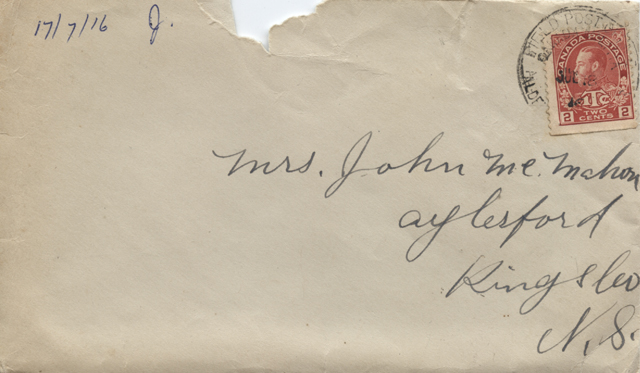 17/7/16 J.
FIELD POST
CANADA POSTAGE
JUL
1Tc
2 TWO CENTS 2
Mrs. John Mc.Mahon
Aylesford
Kings Co
N.S.